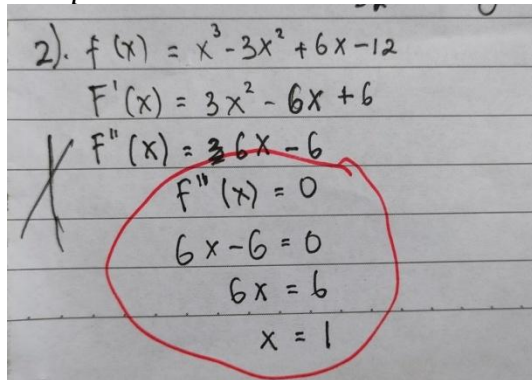 2). f(x) = x³ - 3x² + 6x - 12
F'(x) = 3x² - 6x + 6
F''(x) = 6x - 6
F'''(x) = 0
6x - 6 = 0
6x = 6
x = 1